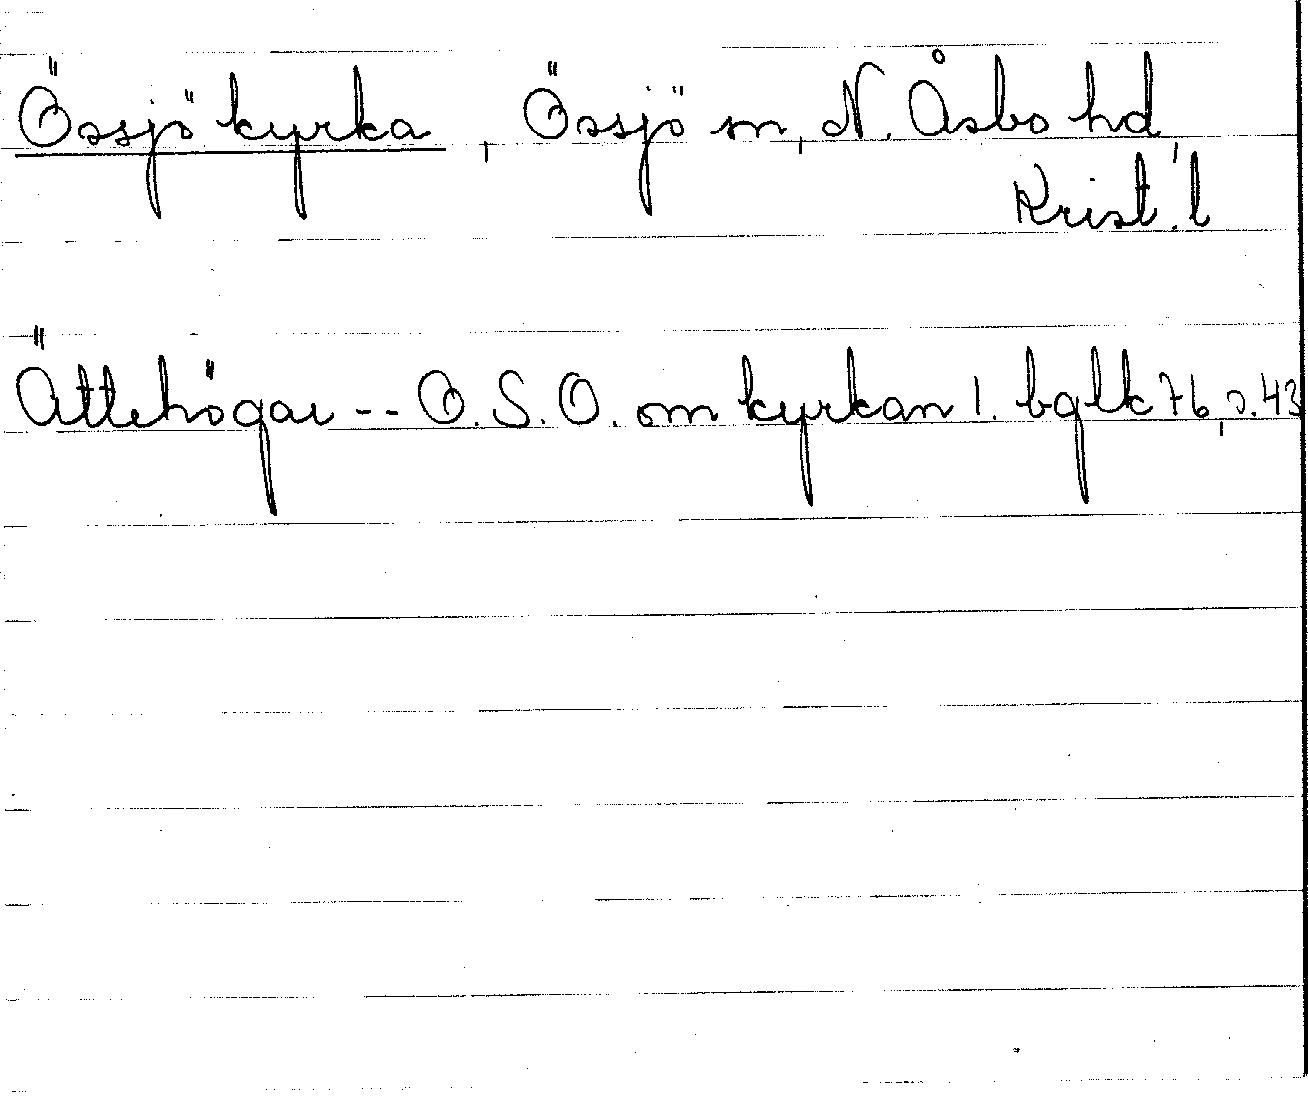 Össjö kyrka, Össjö sn, N. Åsbo hd,
Krist. l
Ättehögar -- O.S.O. om kyrkan 1. bglk 76, s. 43